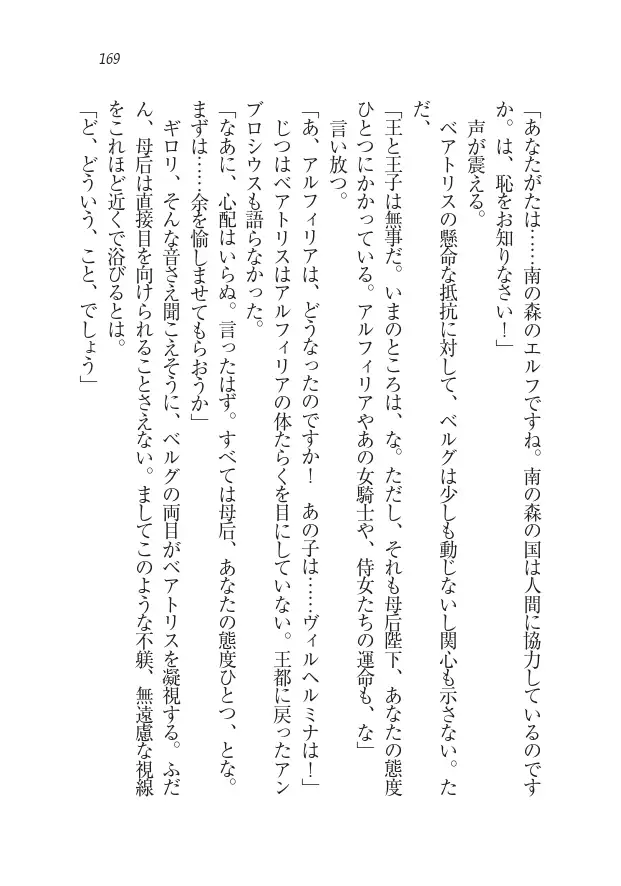 169
「あなたがたは……南の森のエルフですね。南の森の国は人間に協力しているのです
か。は、恥をお知りなさい！」
声が震える。
ベアトリスの懸命な抵抗に対して、ベルグは少しも動じないし関心も示さない。た
だ、
「王と王子は無事だ。いまのところは、な。ただし、それも母后陛下、あなたの態度
ひとつにかかっている。アルフィリアやあの女騎士や、侍女たちの運命も、な」
言い放つ。
「あ、アルフィリアは、どうなったのですか！　あの子は……ヴィルヘルミナは！」
じつはベアトリスはアルフィリアの体たらくを目にしていない。王都に戻ったアン
ブロシウスも語らなかった。
「なあに、心配はいらぬ。言ったはず。すべては母后、あなたの態度ひとつ、とな。
まずは……余を愉しませてもらおうか」
ギロリ、そんな音さえ聞こえそうに、ベルグの両目がベアトリスを凝視する。ふだ
ん、母后は直接目を向けられることさえない。ましてこのような不躾、無遠慮な視線
をこれほど近くで浴びるとは。
「ど、どういう、こと、でしょう」